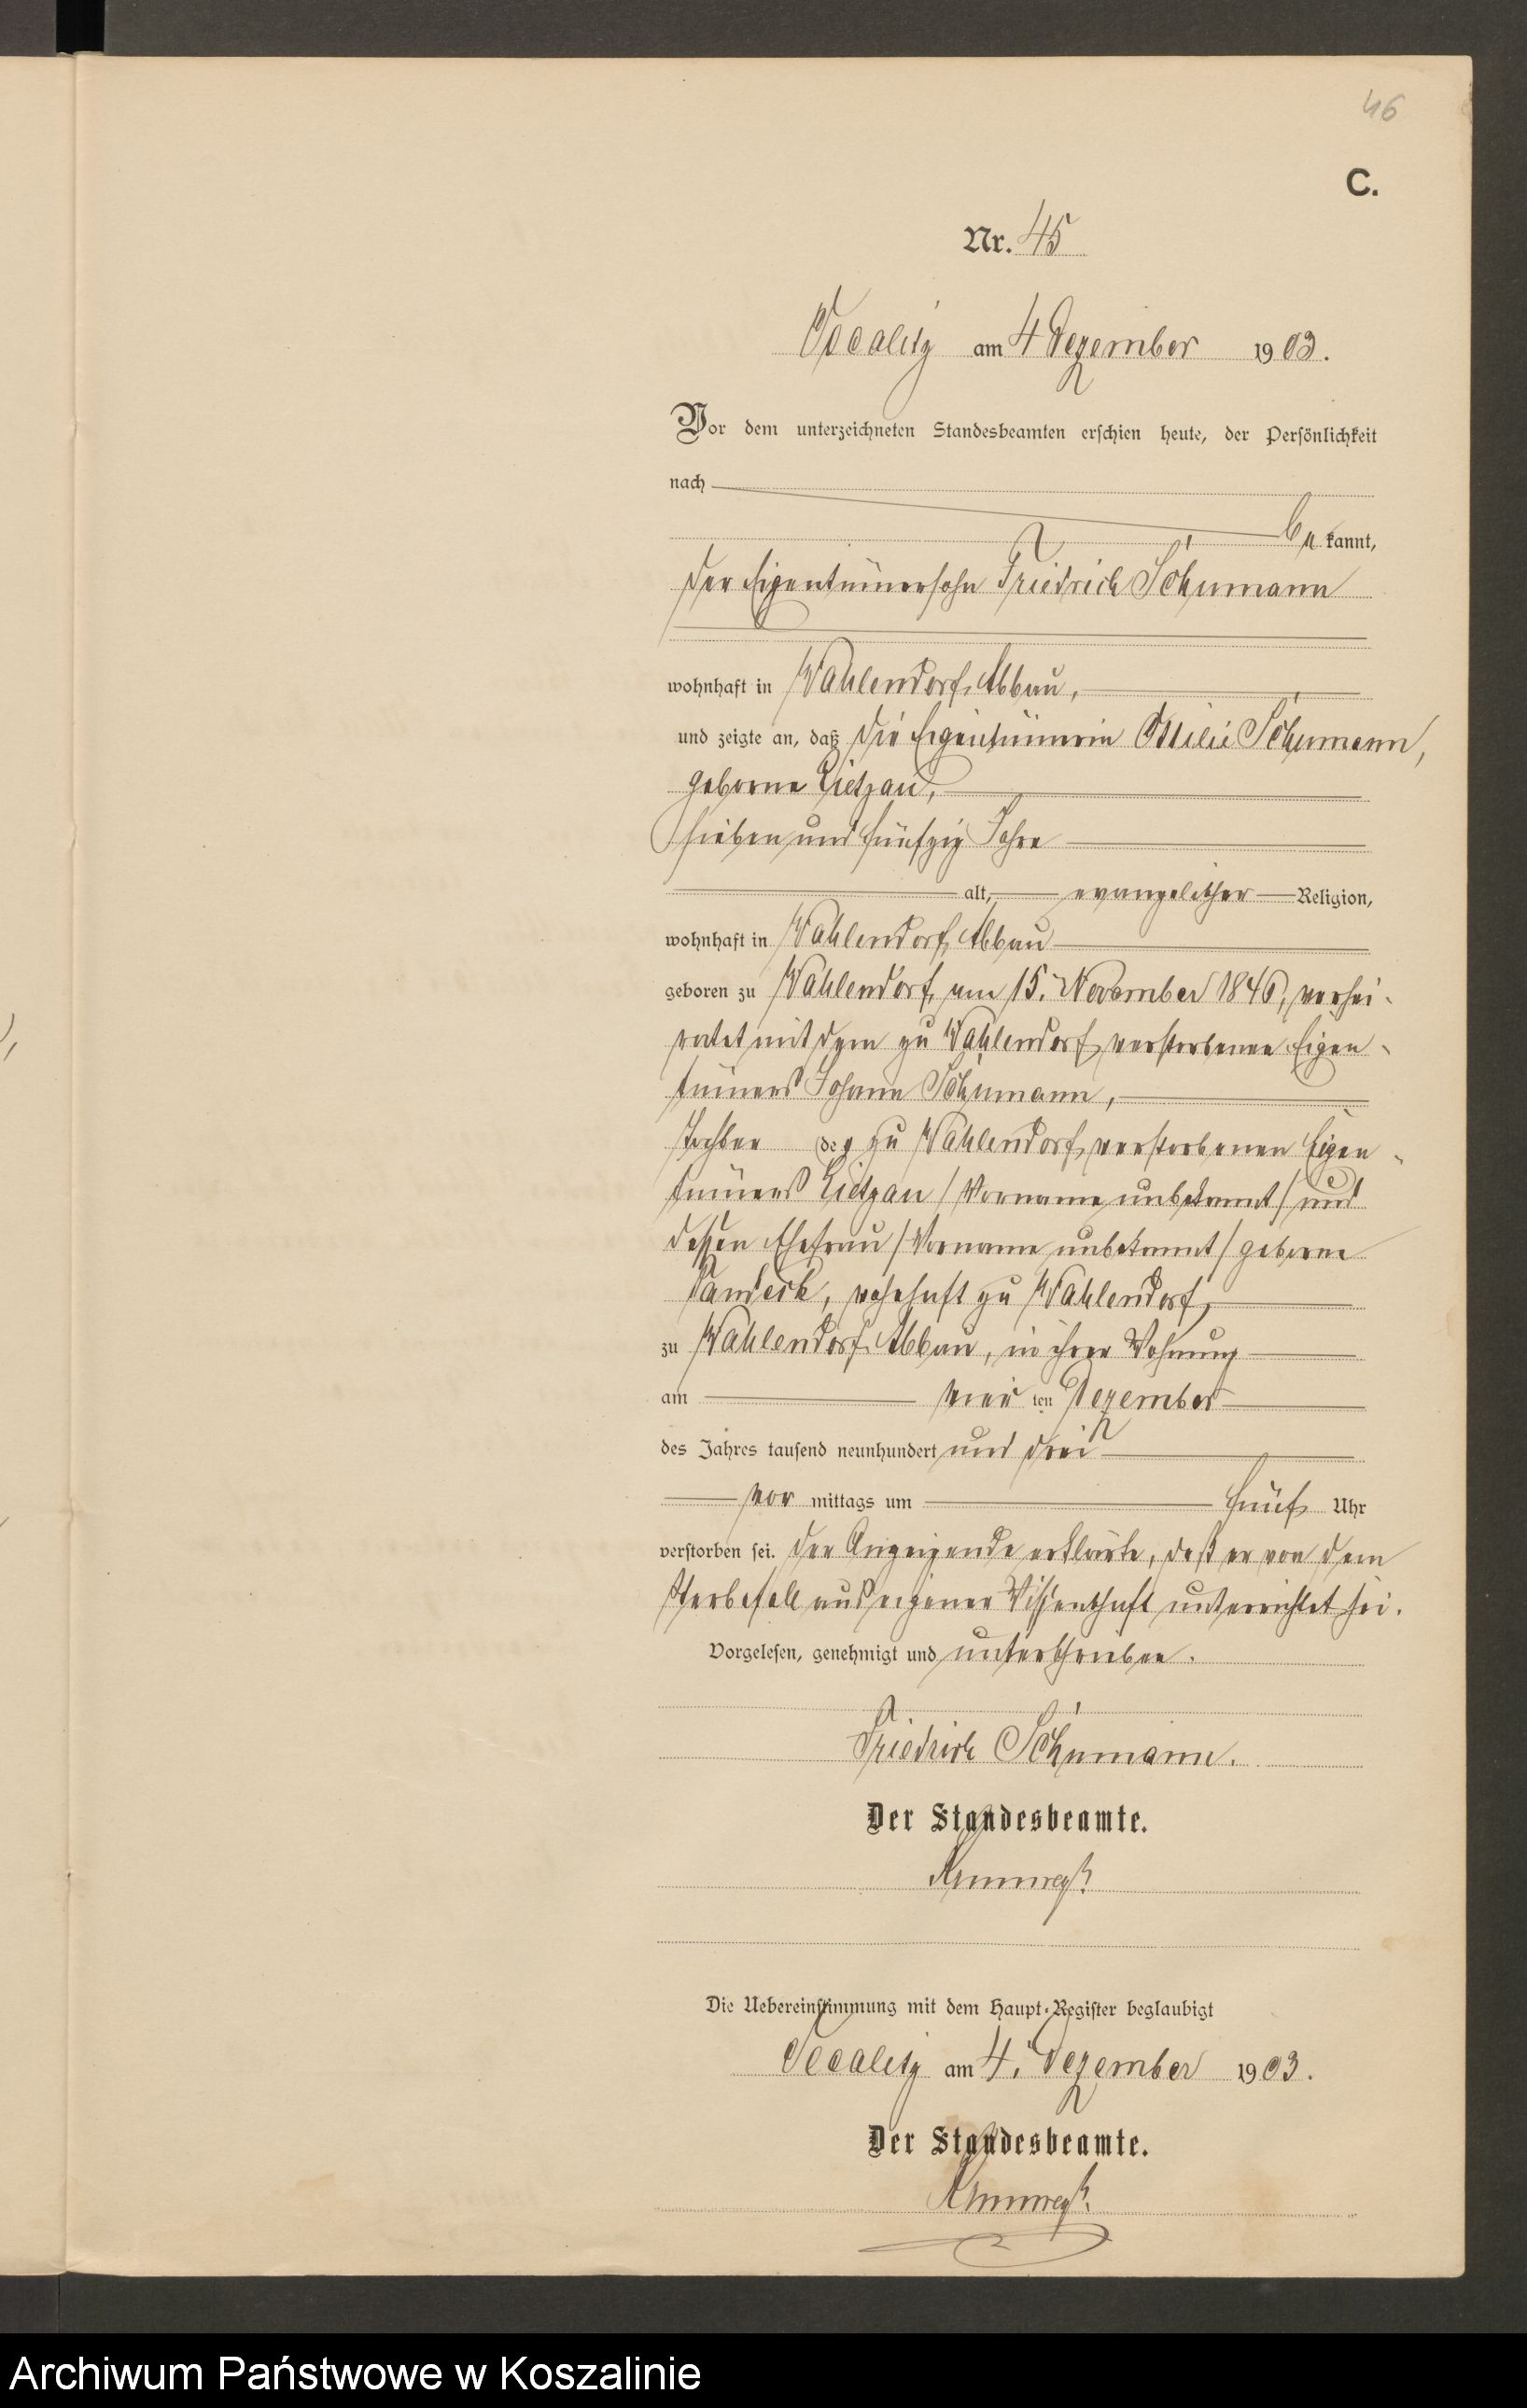 46
C.
Nr. 45
am 4 Dezember 1903.
Vor dem unterzeichneten Standesbeamten erschien heute, der Persönlichkeit
nach
be kannt,
der Eigentümersohn Friedrich Schumann
wohnhaft in Wahlendorf Abbau,
und zeigte an, daß die Eigentümerin Ottilie Schumann,
geborne Lietzau,
sieben und fünfzig Jahre
alt, evangelischer Religion,
wohnhaft in Wahlendorf Abbau
geboren zu Wahlendorf, am 15. November 1846, verhei-
ratet mit dem zu Wahlendorf verstorbenen Eigen-
tümers Johann Schumann,
Tochter des zu Wahlendorf verstorbenen Eigen-
tümers Lietzau /Vorname unbekannt/ und
dessen Ehefrau /Vorname unbekannt/ geborne
wohnhaft zu Wahlendorf,
zu Wahlendorf Abbau, in ihrer Wohnung
am vier ten Dezember
des Jahres tausend neunhundert und drei
vor mittags um fünf Uhr
verstorben sei. Der Anzeigende erklärte, daß er von dem
Sterbefall aus eigener Wissenschaft unterrichtet sei.
Vorgelesen, genehmigt und unterschrieben.
Friedrich Schumann.
Der Standesbeamte.
Die Uebereinstimmung mit dem Haupt-Register beglaubigt
am 4. Dezember 1903.
Der Standesbeamte.
Archiwum Państwowe w Koszalinie